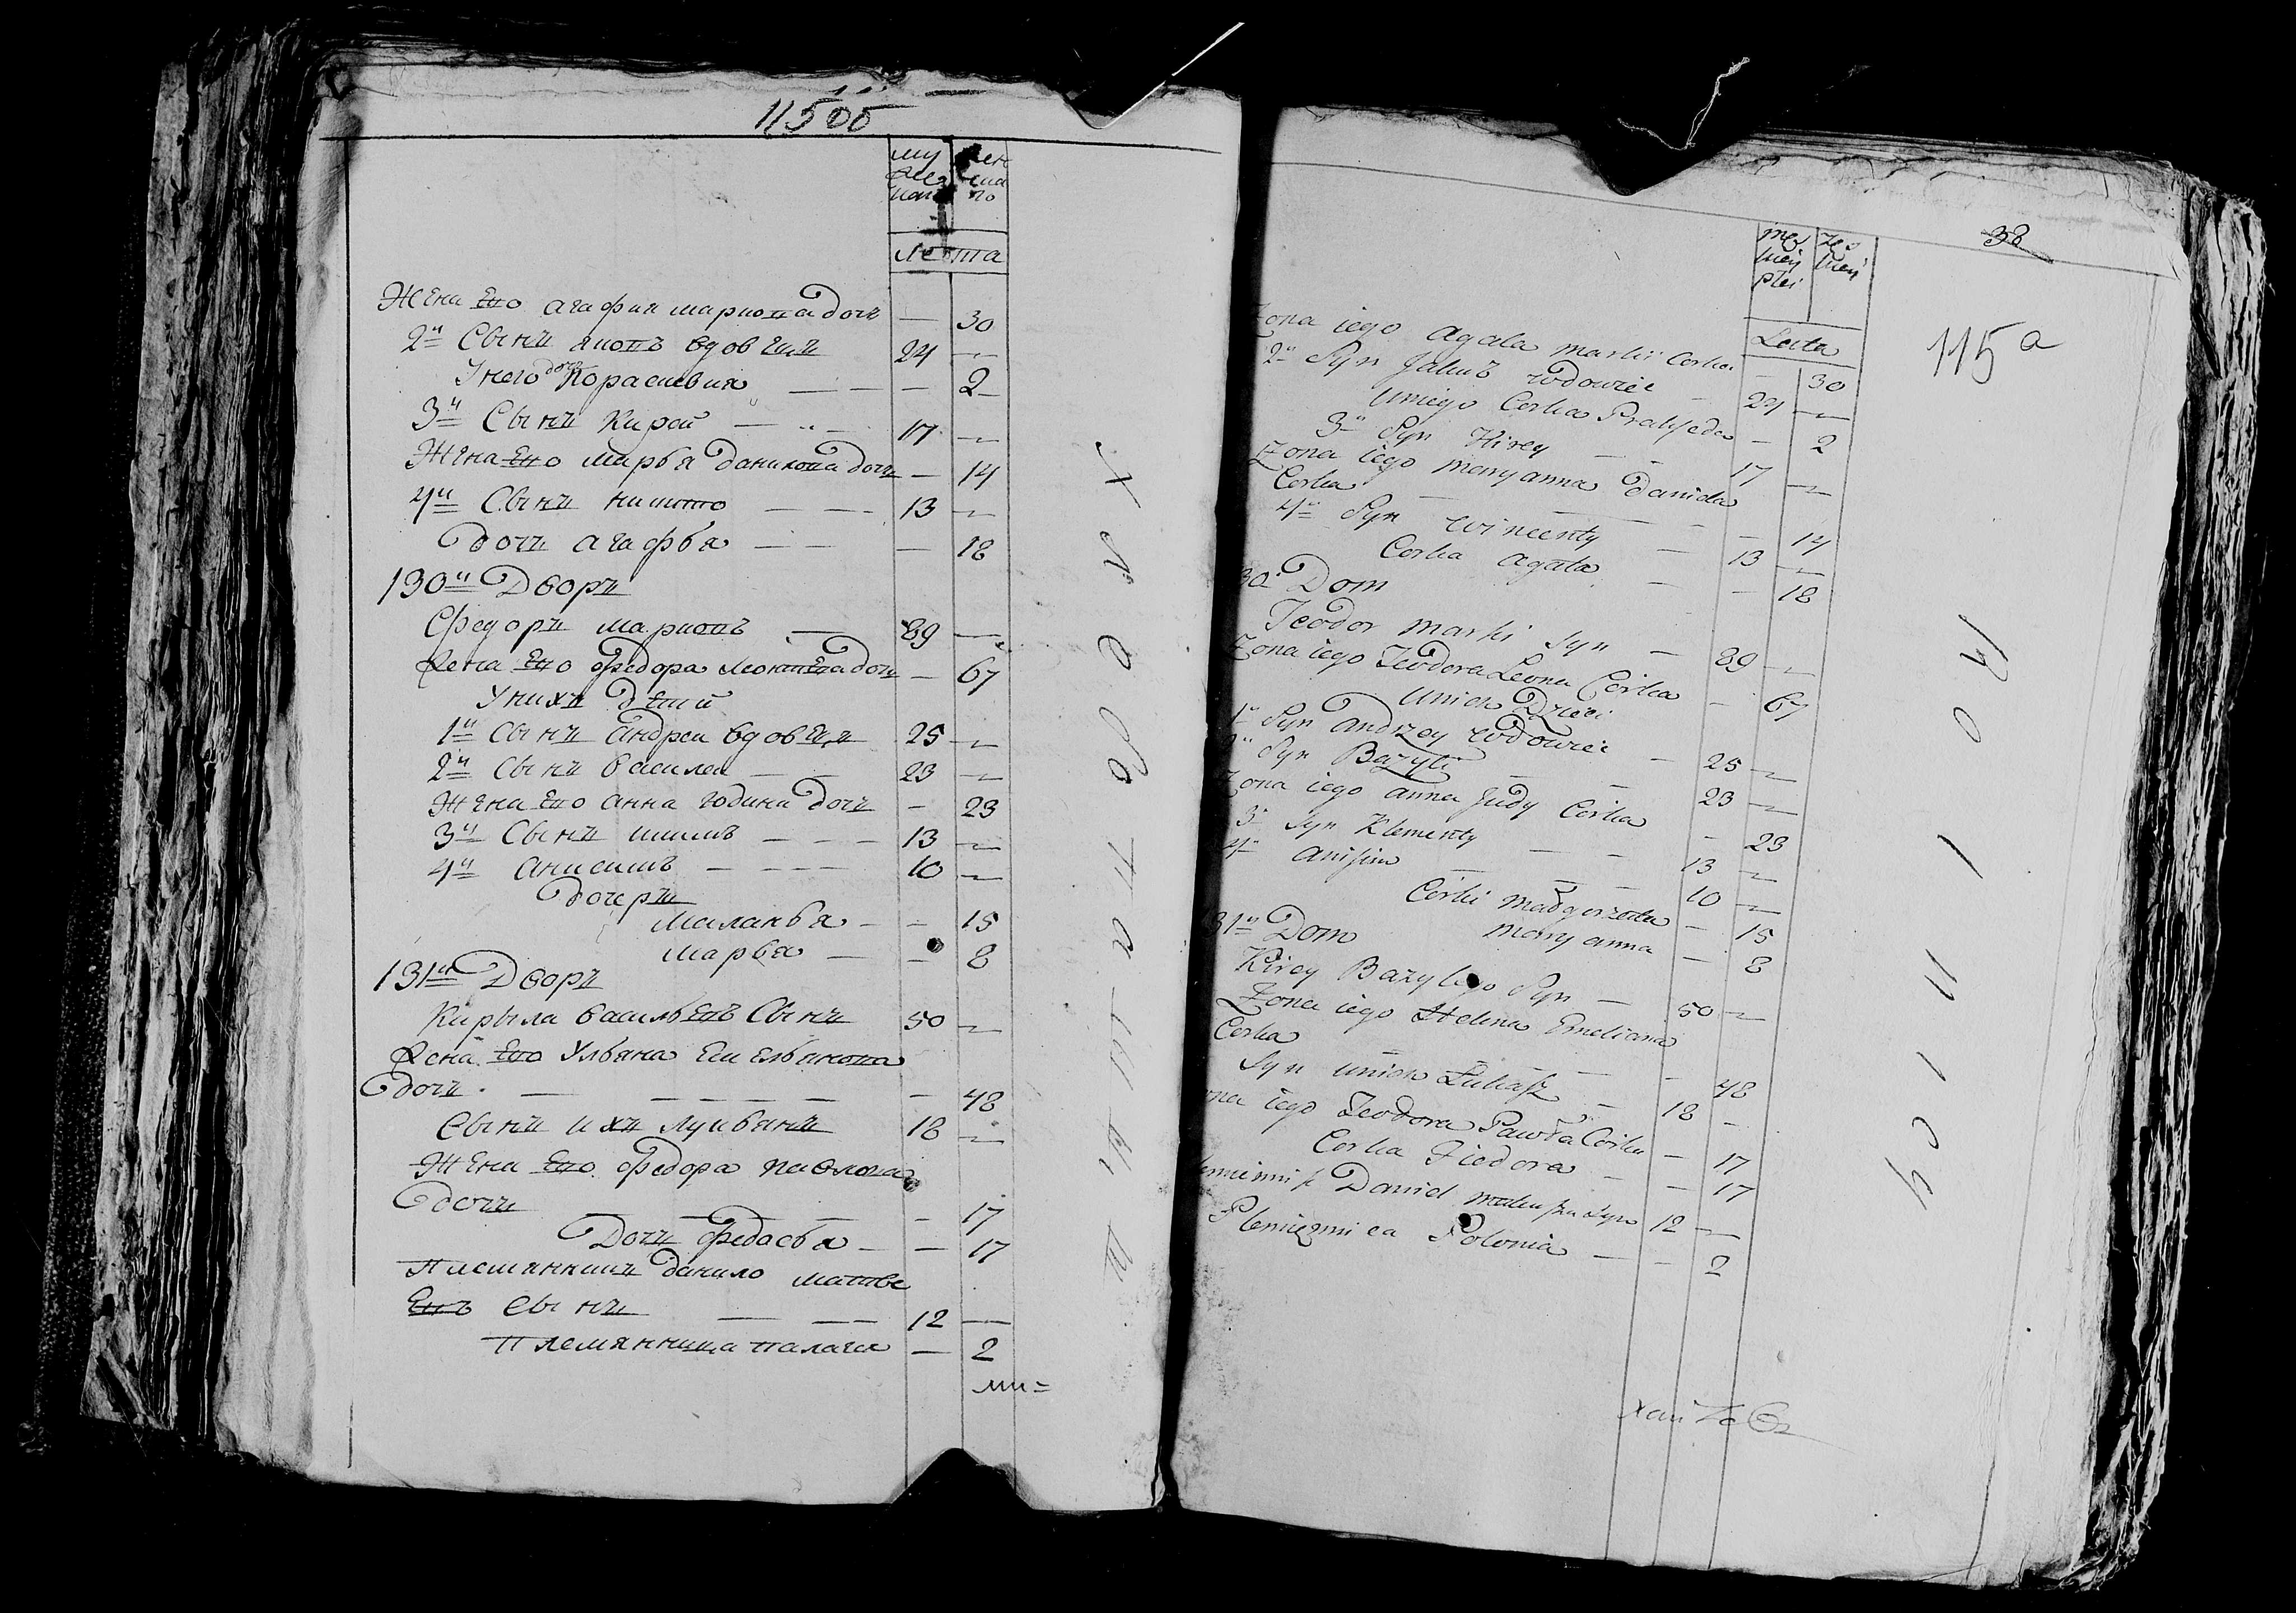 11500
му жен
жес ска
каго го
Лета
Жена Его агафия маркова дочь — 30
2й Сынъ яковъ вдовецъ 24 —
У него дочь Порасковия — — — 2
3й Сынъ Кирей — — 17 —
Жена Его марья данилова дочь — 14
4й Сынъ никито — — 13 —
дочь агафья — — — 18
130й Дворъ
Федоръ марковъ — 89 —
Жена Его федора леонтева дочь — 67
У нихъ детей
1й Сынъ андрей вдовецъ 25 —
2й Сынъ василей — — 23 —
Жена Его анна юдина дочь — 23
3й Сынъ климъ — — — 13 —
4й анисимъ — — — 10 —
дочери
Маланья — — 15
марья — — 8
131й Дворъ
Кирыла васильевъ Сынъ 50 —
Жена Его Ульяна Емельянова
дочь — — — — — — 48
Сынъ ихъ лукьянъ 18 —
Жена Его федора павлова
дочь — — — — 17
Дочь федосья — — 17
Племянникъ данило матве
Евъ Сынъ — — — 12 —
Племянница палагея — 2
ми=
38
115 a
męż żeń
Lata
Zona iego Agata Marki Corka — 30
2i Syn Jakub wdowiec — 24 —
Uniego Corka Praxeda — 2
3i Syn Kirey — — 17 —
Zona iego Maryanna Daniela
Corka — — — — 14
4i Syn Wincenty — 13 —
Corka Agata — — 18
30 Dom
Teodor Marki Syn — 89 —
Zona iego Teodora Leona Corka — 67
Unich Dzieci
1i Syn Andrzey wdowiec — 25 —
Syn Bazyli — — 23 —
Zona iego Anna Judy Corka — 23
3i Syn Klementy — — 13 —
4i Anisim — — — 10 —
Corki Małgorzata — 15
Maryanna — 8
31i Dom
Kirey Bazylego Syn — 50 —
Zona iego Helena Emeliana
Corka — — — 48
Syn unich Łukasz — 18 —
ona iego Teodora Pawła Corka — 17
Corka Fiedora — — 17
Daniel Mateusza Syn 12 —
Plemięnnica Polonia — — 2